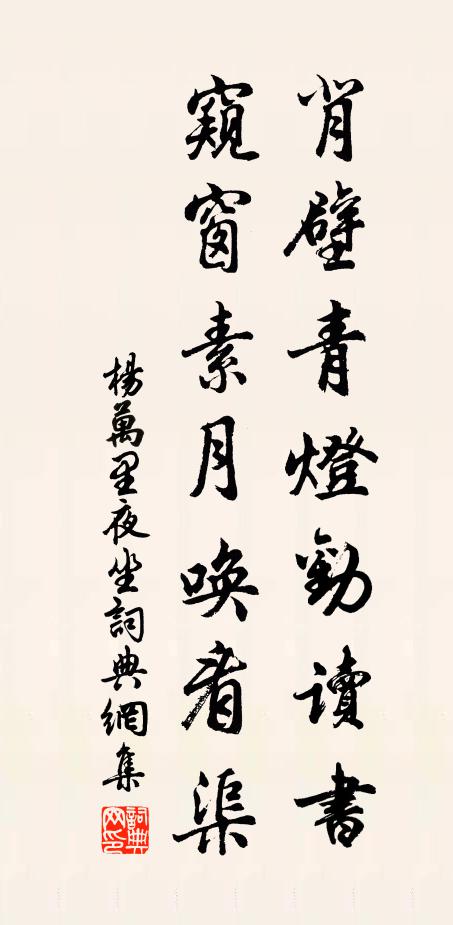 背壁青燈勸读書
窺窗素月喚看渠
楊萬里夜坐詞典網集
詞典網印